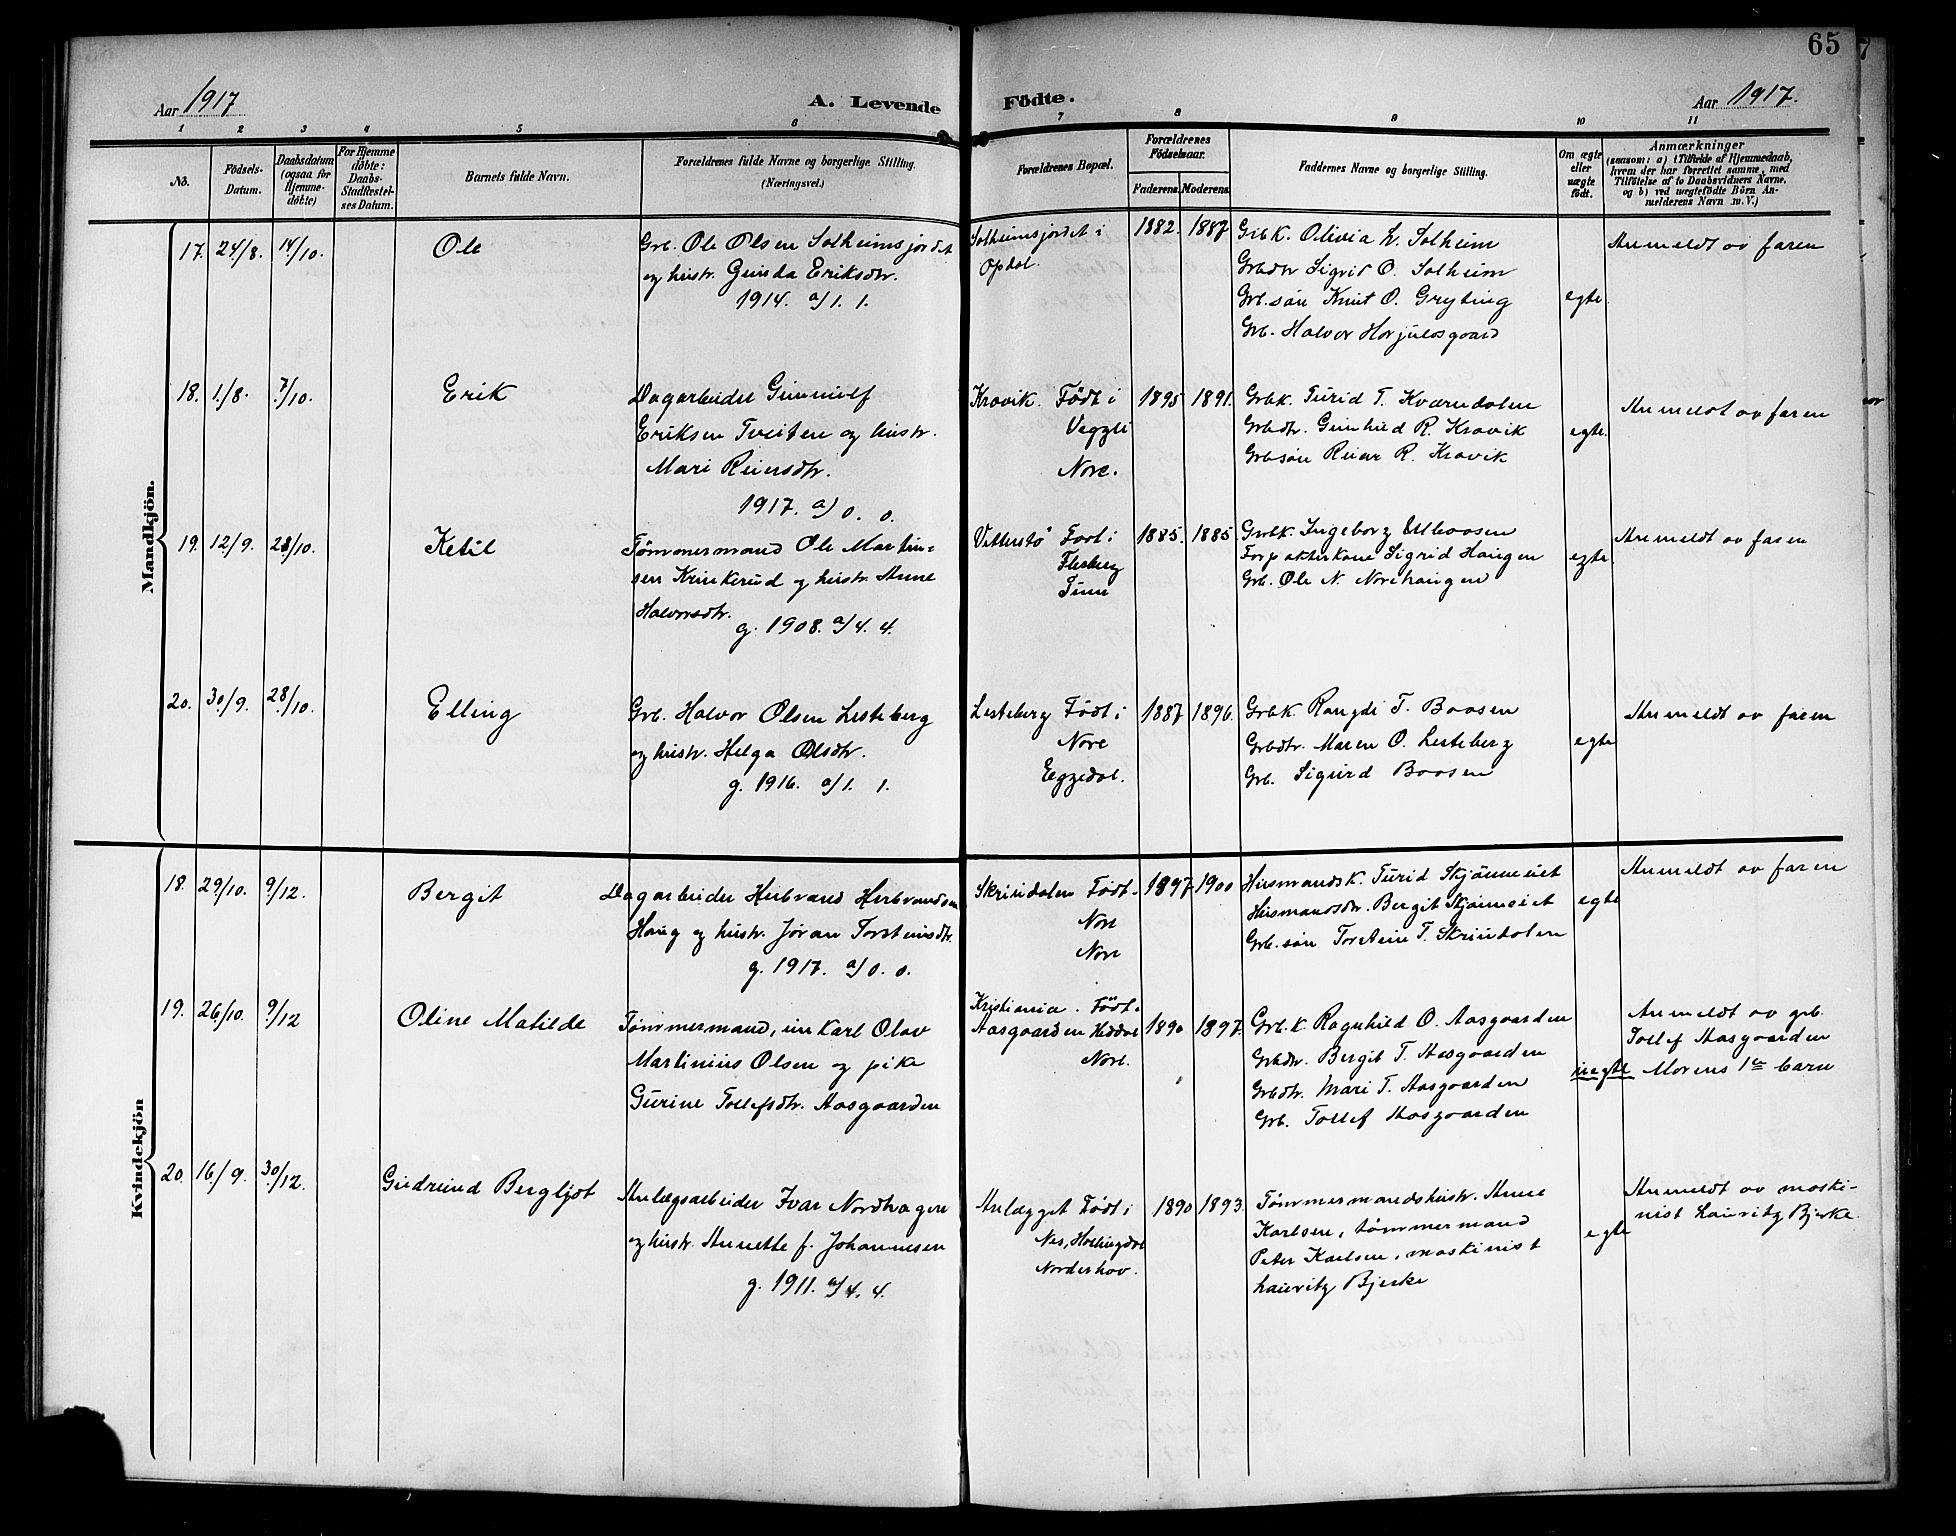 65
Aar 1917
A. Levende
Födte.
Aar 1917.
1 2 3 4 5 6 7 8 9 10 11
No.
Födsels-Datum.
Daabsdatum (ogsaa for Hjemme-döbte)
For Hjemme döbte: Daabs-Stadfæstel-ses Datum.
Barnets fulde Navn.
Forældrenes fulde Navne og borgerlige Stilling. (Næringsvei.)
Forældrenes Bopæl.
Forældrenes Födselsaar.
Faderens. Moderens.
Faddernes Navne og borgerlige Stilling.
Om ægte eller uægte födt.
Anmærkninger
(saasom: a) i Tilfælde af Hjemmedaab,
hvem der har forrettet samme, med
Tilföielse af to Daabsvidners Navne,
og b) ved uægtefödte Börn An-
melderens Navn m. V.)
Mandkjön.
17. 24/8. 14/10. Ole
Grb. Ole Olsen Solheimsjordet
og hustr. Gunda Eriksdtr.
1914. a/1. 1.
Solheimsjordet i
Opdal.
1882. 1887
Grbk. Olivia L. Solheim
Grbdtr Sigrid O. Solheim
Grb. søn Knut O. Gryting
Grb. Halvor Horjulosgaard
egte.
Anmeldt av faren
18. 1/8. 7/10. Erik
Dagarbeider Gunnulf
Eriksen Tveiten og hustr.
Mari Reiersdtr.
1917. a/0. 0.
Kravik. Födt i
Veggli
Nore.
1895 1891.
Grbk. Turid T. Kværndalen
Grbdtr. Gunhild R. Kravik
Grbsøn Reiar R. Kravik
egte.
Anmeldt av faren
19. 12/9. 28/10. Ketil
Tömmermand Ole Martin-
sen Krinkerud og hustr. Anne
Halvorsdtr.
g. 1908. a/4. 4.
Vitterstö Födt i
Flesberg
Tunn
1885. 1885.
Grbk. Ingeborg Ulboosen
Forpakterkone Sigrid Haugen
Grb. Ole N. Norehaugen
egte.
Anmeldt av faren
20. 30/9. 28/10. Elling
Grb. Halvor Olsen Lesteberg
og hustr. Helga Olsdtr.
g. 1916. a/1. 1.
Lesteberg Födt i
Nore
Eggedal.
1887 1896.
Grbk. Rangdi T. Baasen
Grbdtr. Maren O. Lesteberg
Grb. Sigurd Baasen
egte
Anmeldt av faren
Kvindekjön
18. 29/10. 9/12. Bergit
Dagarbeider Herbrand Herbrandsen
Haug og hustr. Jøran Torsteinsdtr.
g. 1917. a/0. 0.
Skrindalen Födt.
Nore
Nore
1897 1900
Husmandsk. Turid Skjönneiet
Husmandsdtr. Bergit Skjönneiet
Grb. søn Torstein T. Skrindalen
egte
Anmeldt av faren
19. 26/10. 9/12 Oline Matilde
Tömmermand, un Karl Olav
Martinius Olsen og pike
Gurine Tollefsdtr. Aasgaarden
Kristiania. Födt.
Aasgaarden Heddal
Nore.
1890 1897.
Grb. k. Ragnhild O. Aasgaarden
Grbdtr. Bergit T. Aasgaarden
Grbdtr. Mari T. Aasgaarden
Grb. Tollef Aasgaarden
uegte
Anmeldt av grb.
Tollef Aasgaarden
Morens 1ste barn
20. 16/9. 30/12. Gudrund Bergljot
Anlægsarbeider Ivar Nordhagen
og hustr. Annette f. Johannesen
g. 1911. a/4. 4.
Anlægget Födt i
Nes, Hallingdal
Norderhov.
1890 1893.
Tömmermandshustr. Anne
Karlsen, tömmermand
Peter Karlsen, maskinist
Lauritz Bjerke
egte
Anmeldt av maski-
nist Lauritz Bjerke.